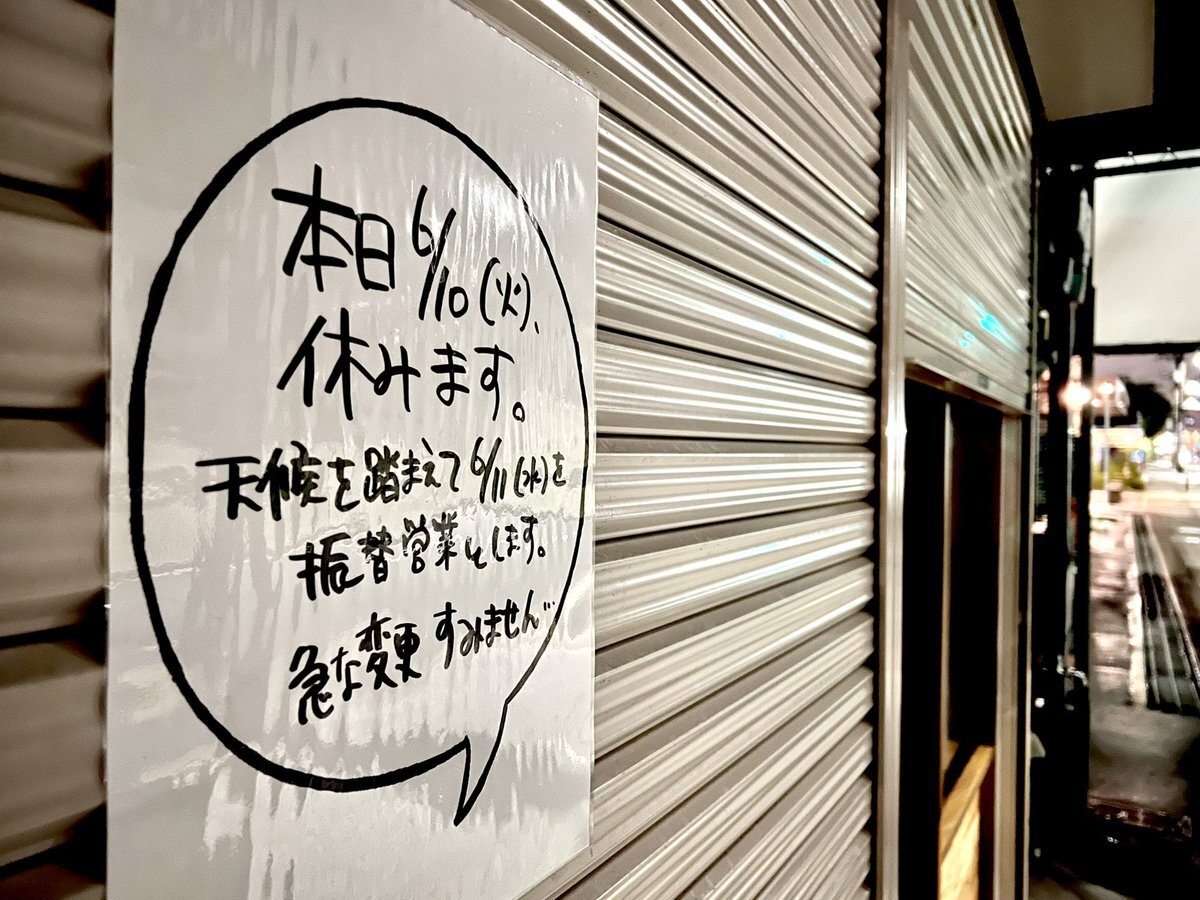 本日6/10(火)、
休みます。
天候を踏まえて6/11(水)を
振替営業とします。
急な変更すみません…